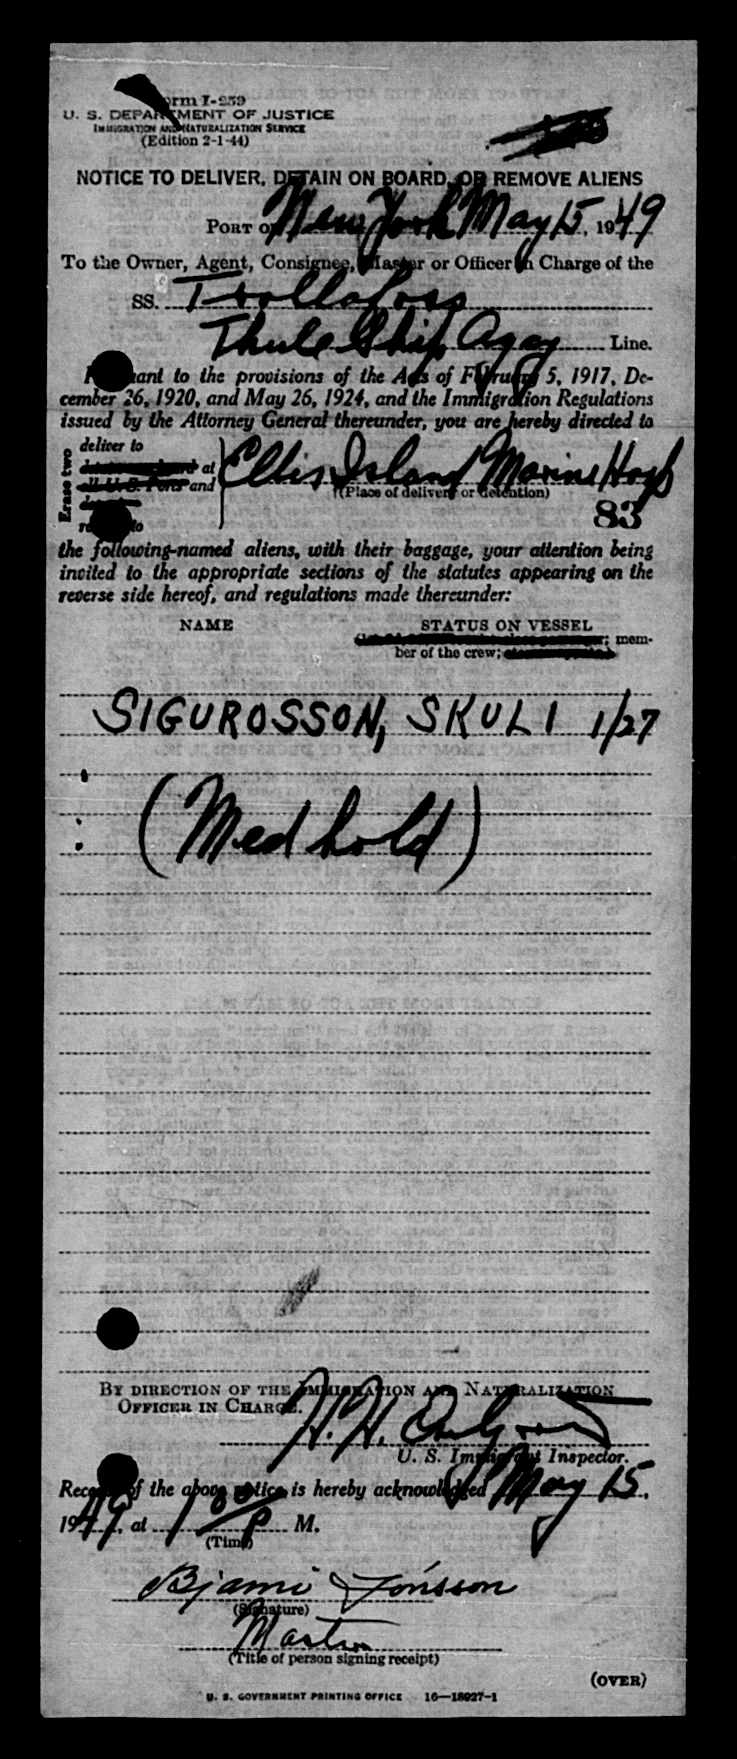 Form I-259
U. S. DEPARTMENT OF JUSTICE
IMMIGRATION AND NATURALIZATION SERVICE
(Edition 2-1-44)
NOTICE TO DELIVER, DETAIN ON BOARD, OR REMOVE ALIENS
PORT OF New York May 15, 1949
To the Owner, Agent, Consignee, Master or Officer in Charge of the
SS. Trollafoss
Thule Ship Agay Line.
Pursuant to the provisions of the Acts of February 5, 1917, De-
cember 26, 1920, and May 26, 1924, and the Immigration Regulations
issued by the Attorney General thereunder, you are hereby directed to
Erase two
deliver to
at
all U. S. Ports and
Ellis Island Marine Hosp
(Place of delivery or detention)
83
the following-named aliens, with their baggage, your attention being
invited to the appropriate sections of the statutes appearing on the
reverse side hereof, and regulations made thereunder:
NAME STATUS ON VESSEL
mem-
ber of the crew;
SIGUROSSON, SKULI 1/27
(Med hold)
BY DIRECTION OF THE IMMIGRATION AND NATURALIZATION
OFFICER IN CHARGE.
H. H.
U. S. Immigrant Inspector.
Receipt of the above notice is hereby acknowledged May 15,
1949, at 1 00 P M.
(Time)
Bjarni Jónsson
(Signature)
Master
(Title of person signing receipt)
(OVER)
U. S. GOVERNMENT PRINTING OFFICE 16—18927-1